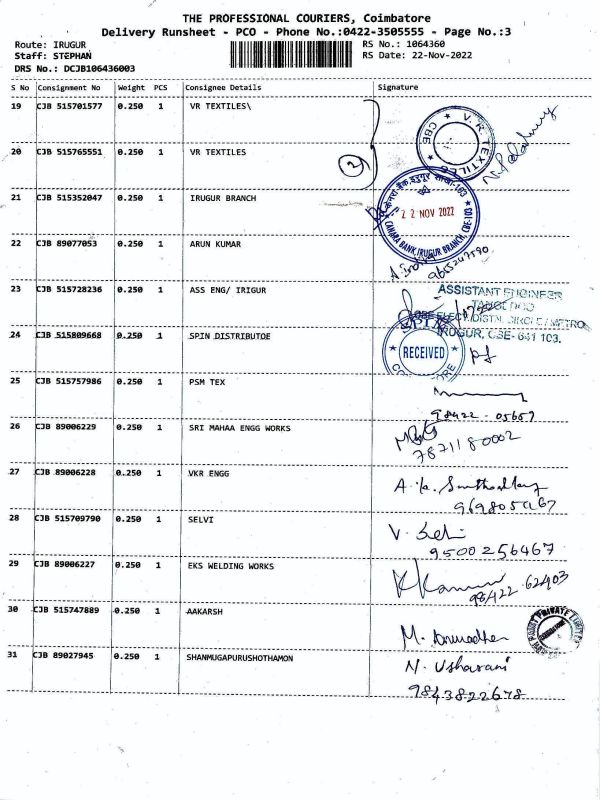 THE PROFESSIONAL COURIERS, Coimbatore
Delivery Runsheet - PCO - Phone No.:0422-3505555 - Page No.:3
Route: IRUGUR RS No.: 1064360
Staff: STEPHAN RS Date: 22-Nov-2022
DRS No.: DCJB106436003
S No Consignment No Weight PCS Consignee Details Signature
19 CJB 515701577 0.250 1 VR TEXTILES\
V.R. TEXTILES CBE
20 CJB 515765551 0.250 1 VR TEXTILES
2
21 CJB 515352047 0.250 1 IRUGUR BRANCH
22 NOV 2022
CANARA BANK, IRUGUR BRANCH, CBE-103
22 CJB 89077053 0.250 1 ARUN KUMAR
23 CJB 515728236 0.250 1 ASS ENG/ IRIGUR
ASSISTANT ENGINEER
IRUGUR, CSE- 641 103.
24 CJB 515809668 0.250 1 SPIN DISTRIBUTOE
RECEIVED
25 CJB 515757986 0.250 1 PSM TEX
98422-05657
26 CJB 89006229 0.250 1 SRI MAHAA ENGG WORKS
7871180002
27 CJB 89006228 0.250 1 VKR ENGG
28 CJB 515709790 0.250 1 SELVI
V. Selvi
9500256467
29 CJB 89006227 0.250 1 EKS WELDING WORKS
98422-62403
30 CJB 515747889 0.250 1 AAKARSH
31 CJB 89027945 0.250 1 SHANMUGAPURUSHOTHAMON
N. Usharani
9843822678